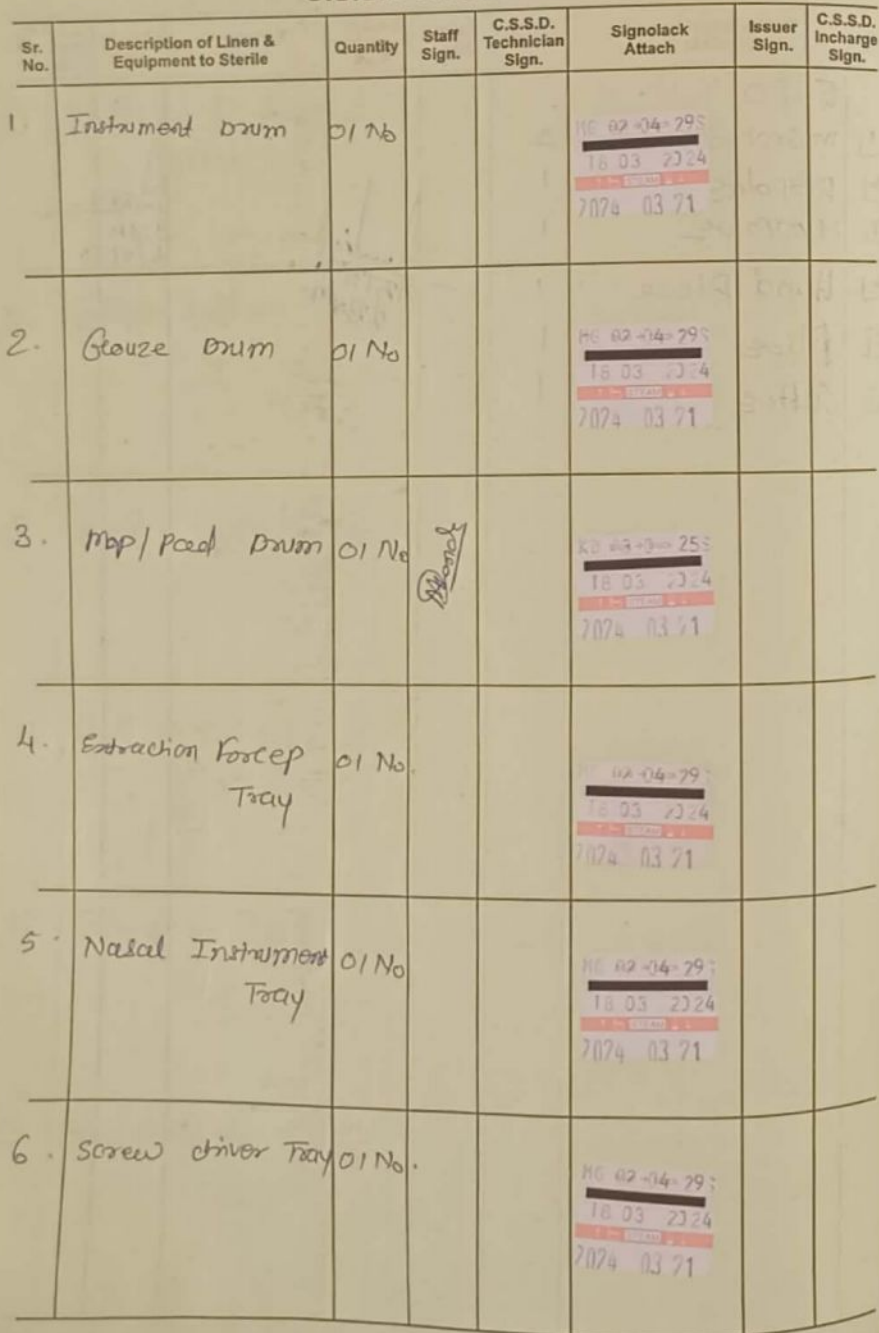 Sr. No. Description of Linen & Equipment to Sterile Quantity Staff Sign. C.S.S.D. Technician Sign. Signolack Attach Issuer Sign. C.S.S.D. Incharge Sign.
1 Instrument Drum 01 No
MG 02-04-29S
18 03 2024
STEAM
2024 03 21
2. Gauze Drum 01 No
MG 02-04-29S
18 03 2024
STEAM
2024 03 21
3. Mop/Pad Drum 01 No
25S
18 03 2024
STEAM
2024 03 21
4. Extraction Forcep 01 No.
Tray
02-04-29
18 03 2024
STEAM
2024 03 21
5. Nasal Instrument 01 No
Tray
MG 02-04-29
18 03 2024
STEAM
2024 03 21
6. Screw driver Tray 01 No.
MG 02-04-29S
18 03 2024
STEAM
2024 03 21